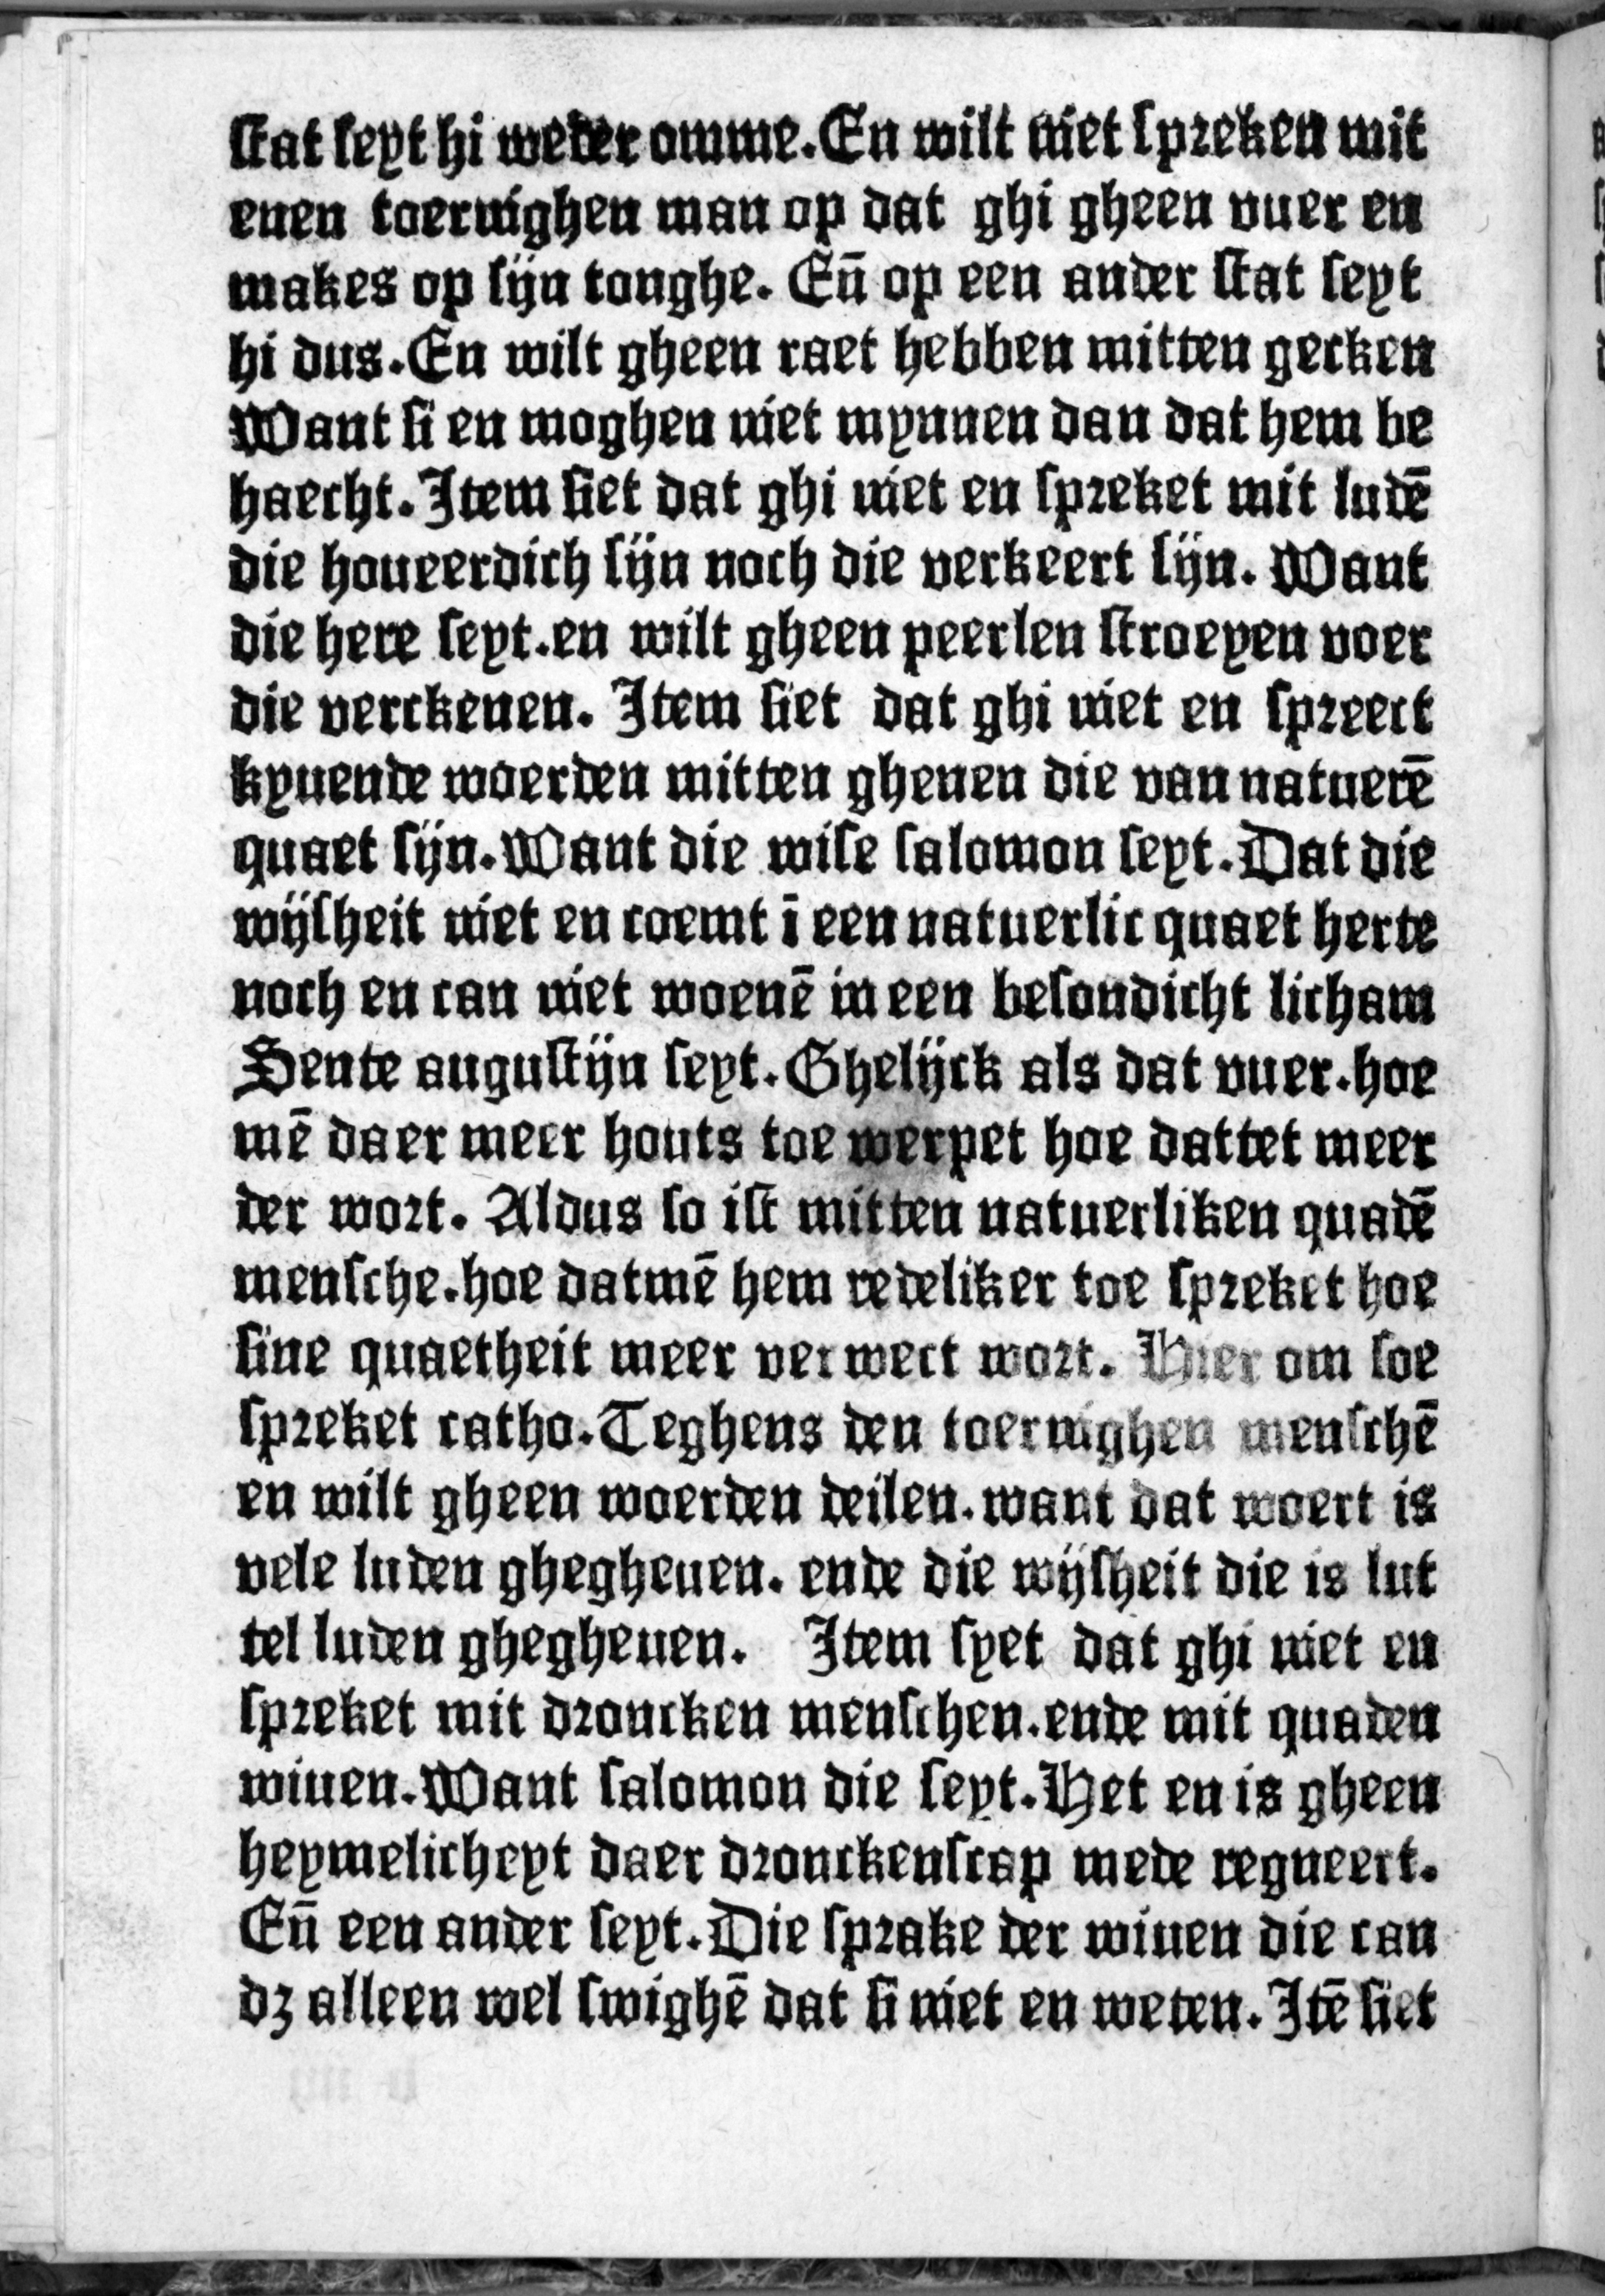 stat seyt hi weder omme. En wilt niet spreken mit
enen toernighen man op dat ghi gheen vuer en
makes op sijn tonghe. Eñ op een ander stat seyt
hi dus. En wilt gheen raet hebben mitten gecken
Want si en moghen niet mynnen dan dat hem be
haecht. Item siet dat ghi niet en spreket mit ludē
die houeerdich sijn noch die verkeert sijn. Want
die here seyt. en wilt gheen peerlen stroeyen voer
die verckenen. Item siet dat ghi niet en spreect
kyuende woerden mitten ghenen die van natuerē
quaet sijn. Want die wise salomon seyt. Dat die
wijsheit niet en coemt ī een natuerlic quaet herte
noch en can niet woenē in een besondicht licham
Sente augustijn seyt. Ghelijck als dat vuer. hoe
mē daer meer houts toe werpet hoe dattet meer
der wort. Aldus so ist mitten natuerliken quadē
mensche. hoe datmē hem redeliker toe spreket hoe
sine quaetheit meer verwect wort. Hier om soe
spreket catho. Teghens den toernighen menschē
en wilt gheen woerden deilen. want dat woert is
vele luden ghegheuen. ende die wijsheit die is lut
tel luden ghegheuen. Item syet dat ghi niet en
spreket mit droncken menschen. ende mit quaden
wiuen. Want salomon die seyt. Het en is gheen
heymelicheyt daer dronckenscap mede regneert.
Eñ een ander seyt. Die sprake der wiuen die can
dʒ alleen wel swighē dat si niet en weten. Itē siet